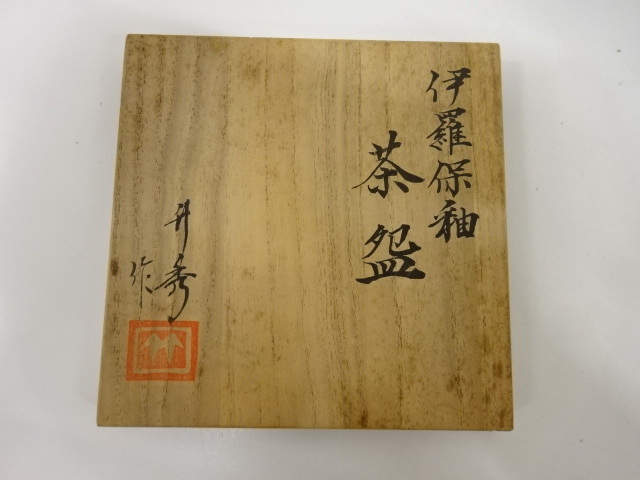 伊羅保釉
茶盌
升秀
作